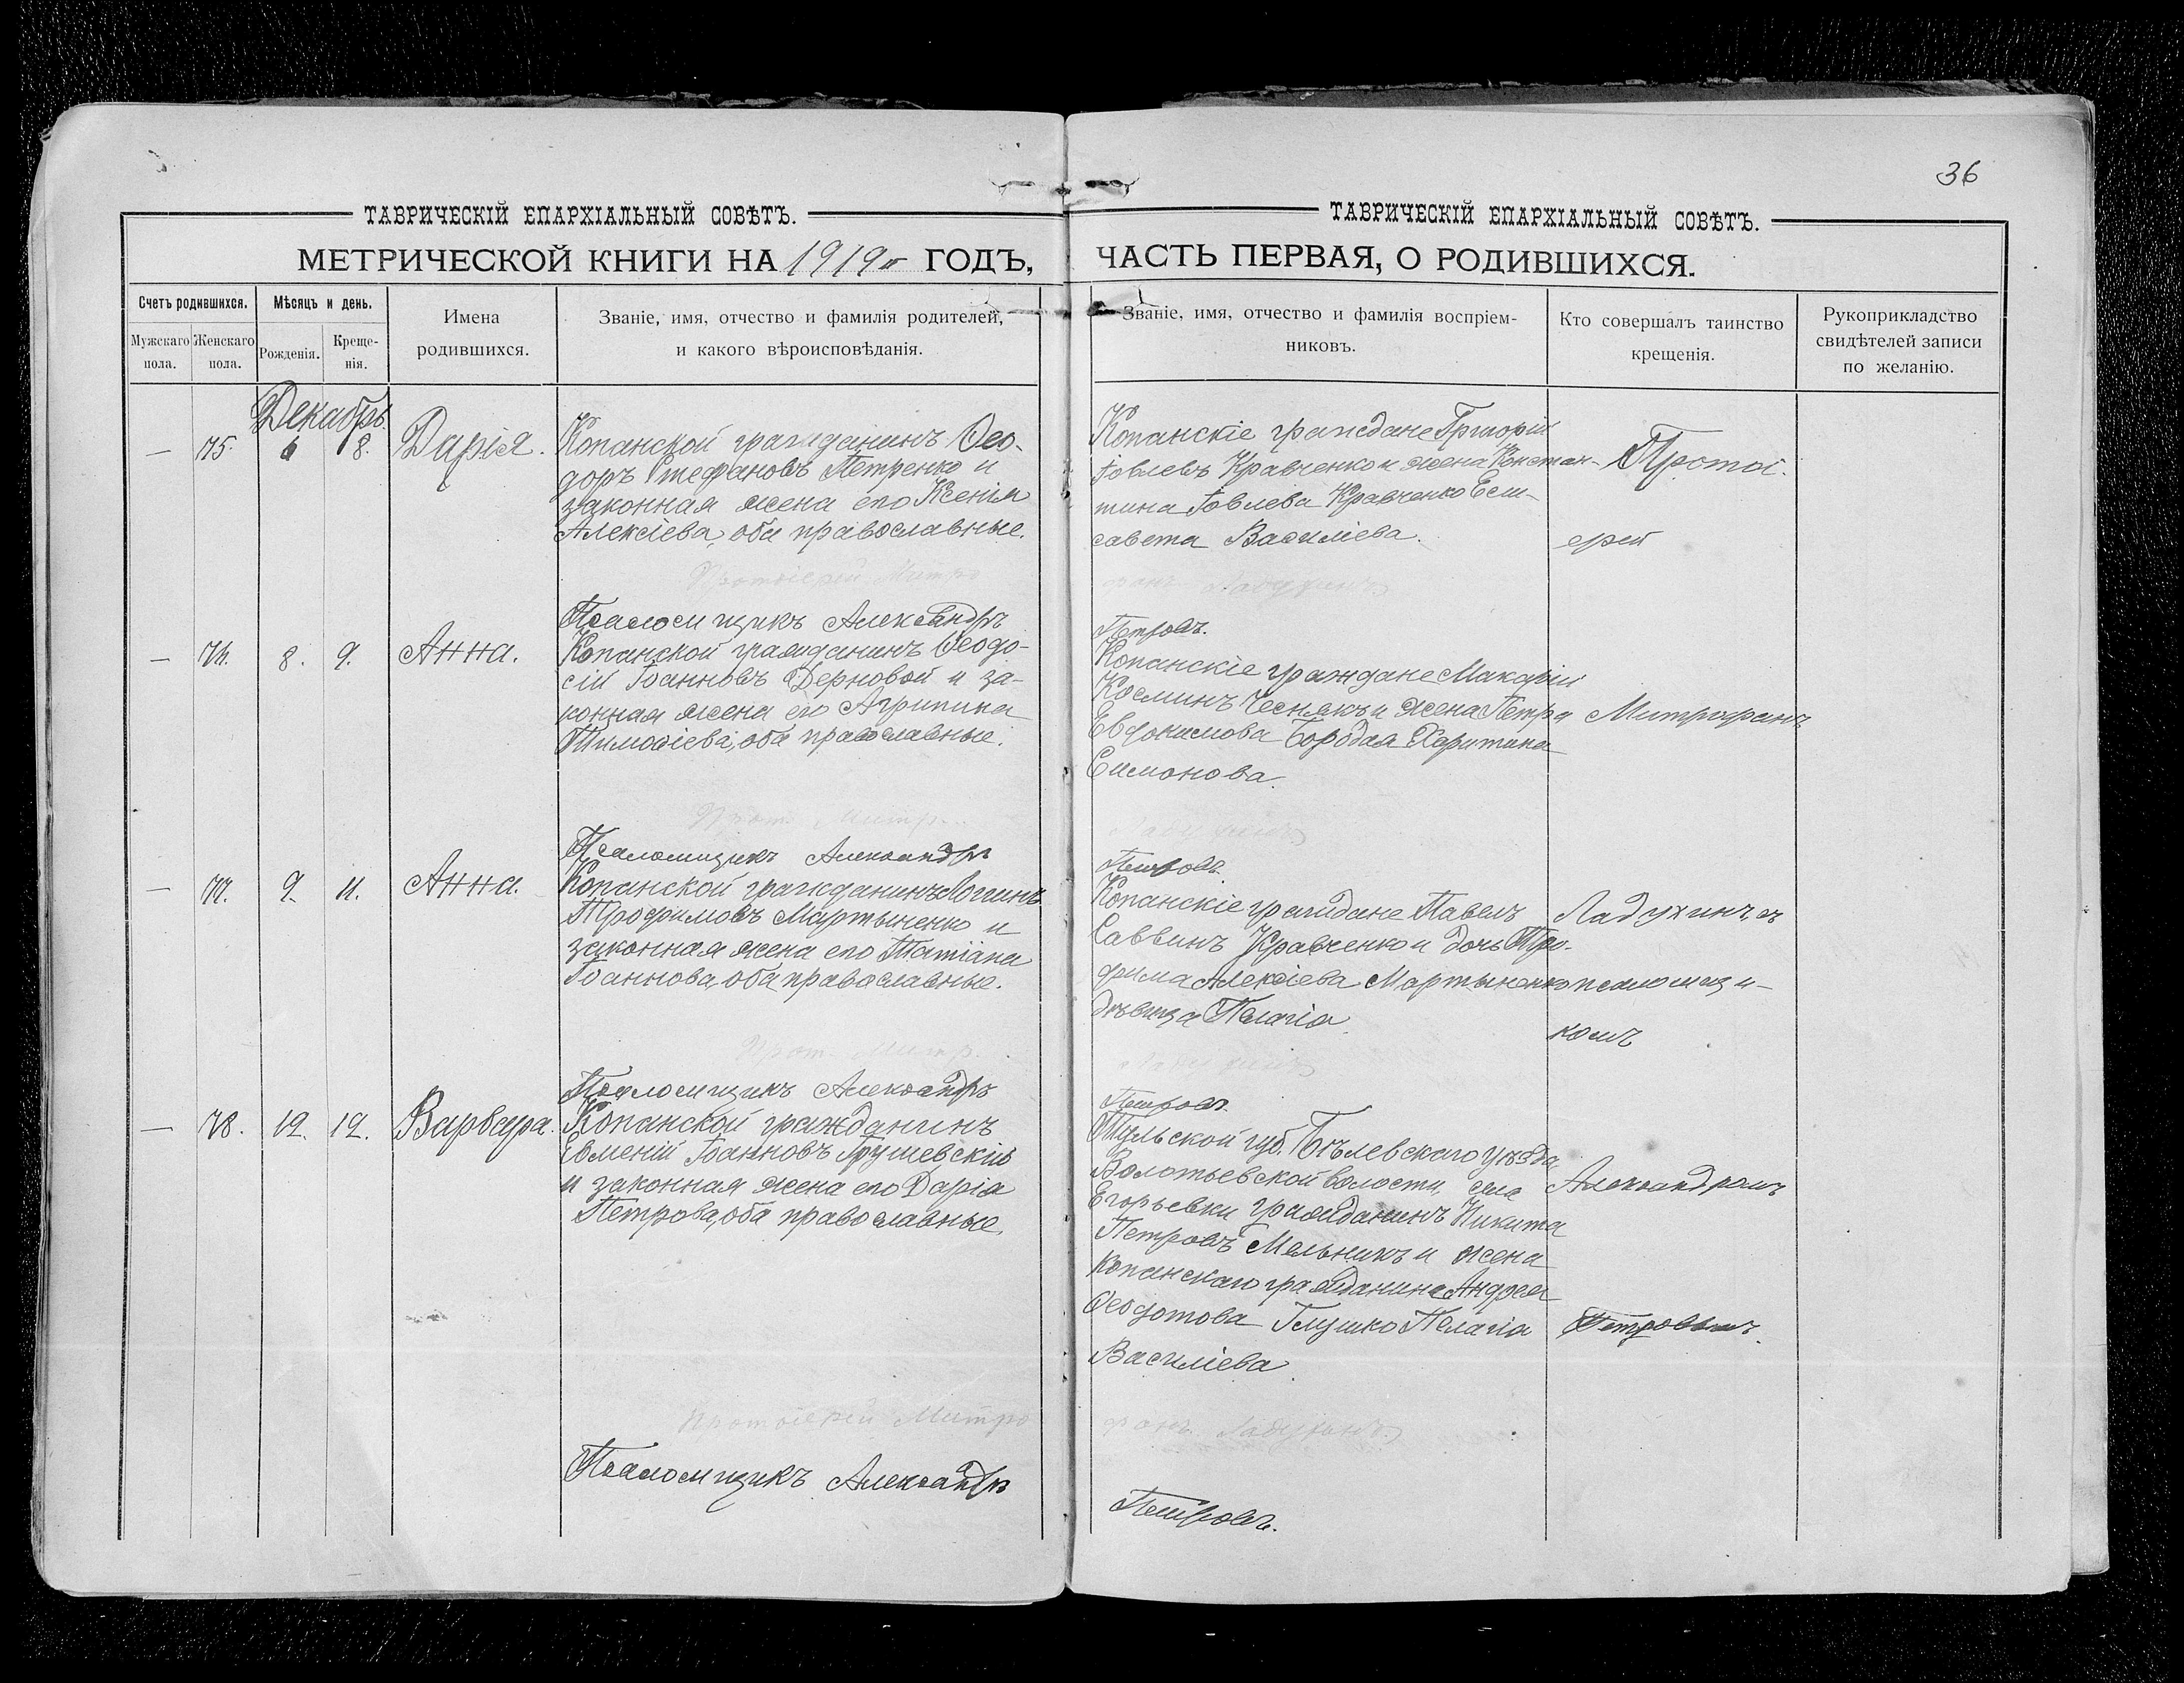 36
ТАВРИЧЕСКІЙ ЕПАРХІАЛЬНЫЙ СОВѢТЪ.
МЕТРИЧЕСКОЙ КНИГИ НА 1919 ГОДЪ,
Счетъ родившихся.
Мужскаго пола.
Женскаго пола.
Мѣсяцъ и день.
Рожденія.
Креще-
нія.
Имена
родившихся.
Званіе, имя, отчество и фамилія родителей,
и какого вѣроисповѣданія.
Декабрь
— 75. 6 8. Дарія.
Копанской гражданинъ Ѳео-
доръ Стефановъ Петренко и
законная жена его Ксенія
Алексіева, оба православные.
Протоіерей Митро
Псаломщикъ Александръ
— 76. 8. 9. Анна.
Копанской гражданинъ Ѳеодо-
сій Іоанновъ Дерновой и за-
конная жена его Агрипина
Тимоѳіева, оба православные.
Прот. Митр.
Псаломщикъ Александръ
— 77. 9. 11. Анна.
Копанской гражданинъ Логгинъ
Трофимовъ Мартыненко и
законная жена его Татіана
Іоаннова, оба православные.
Прот. Митр.
Псаломщикъ Александръ
— 78. 12. 12. Варвара.
Копанской гражданинъ
Евменій Іоанновъ Грушевскій
и законная жена его Дарія
Петрова, оба православные.
Протоіерей Митро
Псаломщикъ Александръ
ТАВРИЧЕСКІЙ ЕПАРХІАЛЬНЫЙ СОВѢТЪ.
ЧАСТЬ ПЕРВАЯ, О РОДИВШИХСЯ.
Званіе, имя, отчество и фамилія воспріем-
никовъ.
Кто совершалъ таинство
крещенія.
Рукоприкладство
свидѣтелей записи
по желанію.
Копанскіе граждане Григорій
Іовлевъ Кравченко и жена Констан-
тина Іовлева Кравченко Ели-
савета Василіева.
фанъ Ладухинъ
Петровъ.
Копанскіе граждане Макарій
Косминъ Чеснокъ и жена Петра
Евдокимова Бородая Харитина
Симонова.
Ладухинъ
Петровъ.
Копанскіе граждане Павелъ
Саввинъ Кравченко и дочь Тро-
фима Алексіева Мартыненко
дѣвица Пелагія
Ладухинъ
Петровъ.
Тульской губ. Бѣлевскаго уѣзда,
Болотьевской волости, села
Егорьевки гражданинъ Никита
Петровъ Мельникъ и жена
Копанскаго гражданина Андрея
Ѳеодотова Глушко Пелагія
Василіева.
фанъ Ладухинъ
Петровъ.
Протоі-
ерей
Митрофанъ
Ладухинъ, съ
псаломщи-
комъ
Александромъ
Петровымъ.